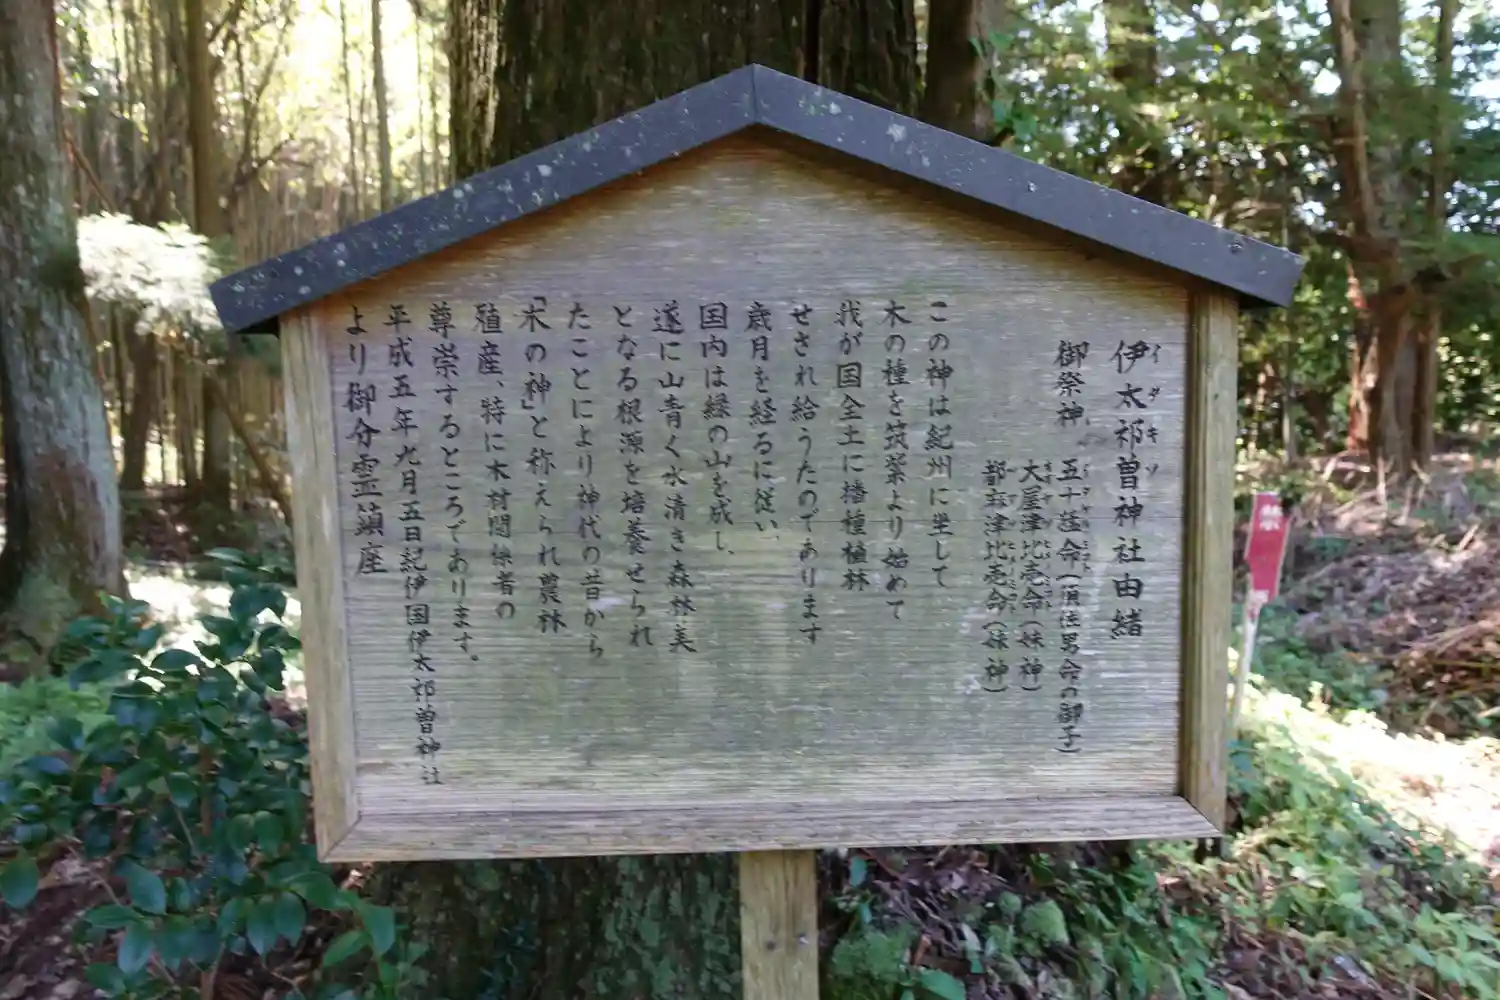 伊太祁曽神社由緒
イタキソ
御祭神 五十猛命(須佐男命の御子)
大屋津比売命(妹神)
都麻津比売命(妹神)
この神は紀州に坐して
木の種を筑紫より始めて
我が国全土に播種植林
せされ給うたのであります
歳月を経るに従い、
国内は緑の山を成し、
遂に山青く水清き森林美
となる根源を培養せられ
たことにより神代の昔から
「木の神」と称えられ農林
殖産、特に木材関係者の
尊崇するところであります。
平成五年九月五日紀伊国伊太祁曽神社
より御分霊鎮座
禁